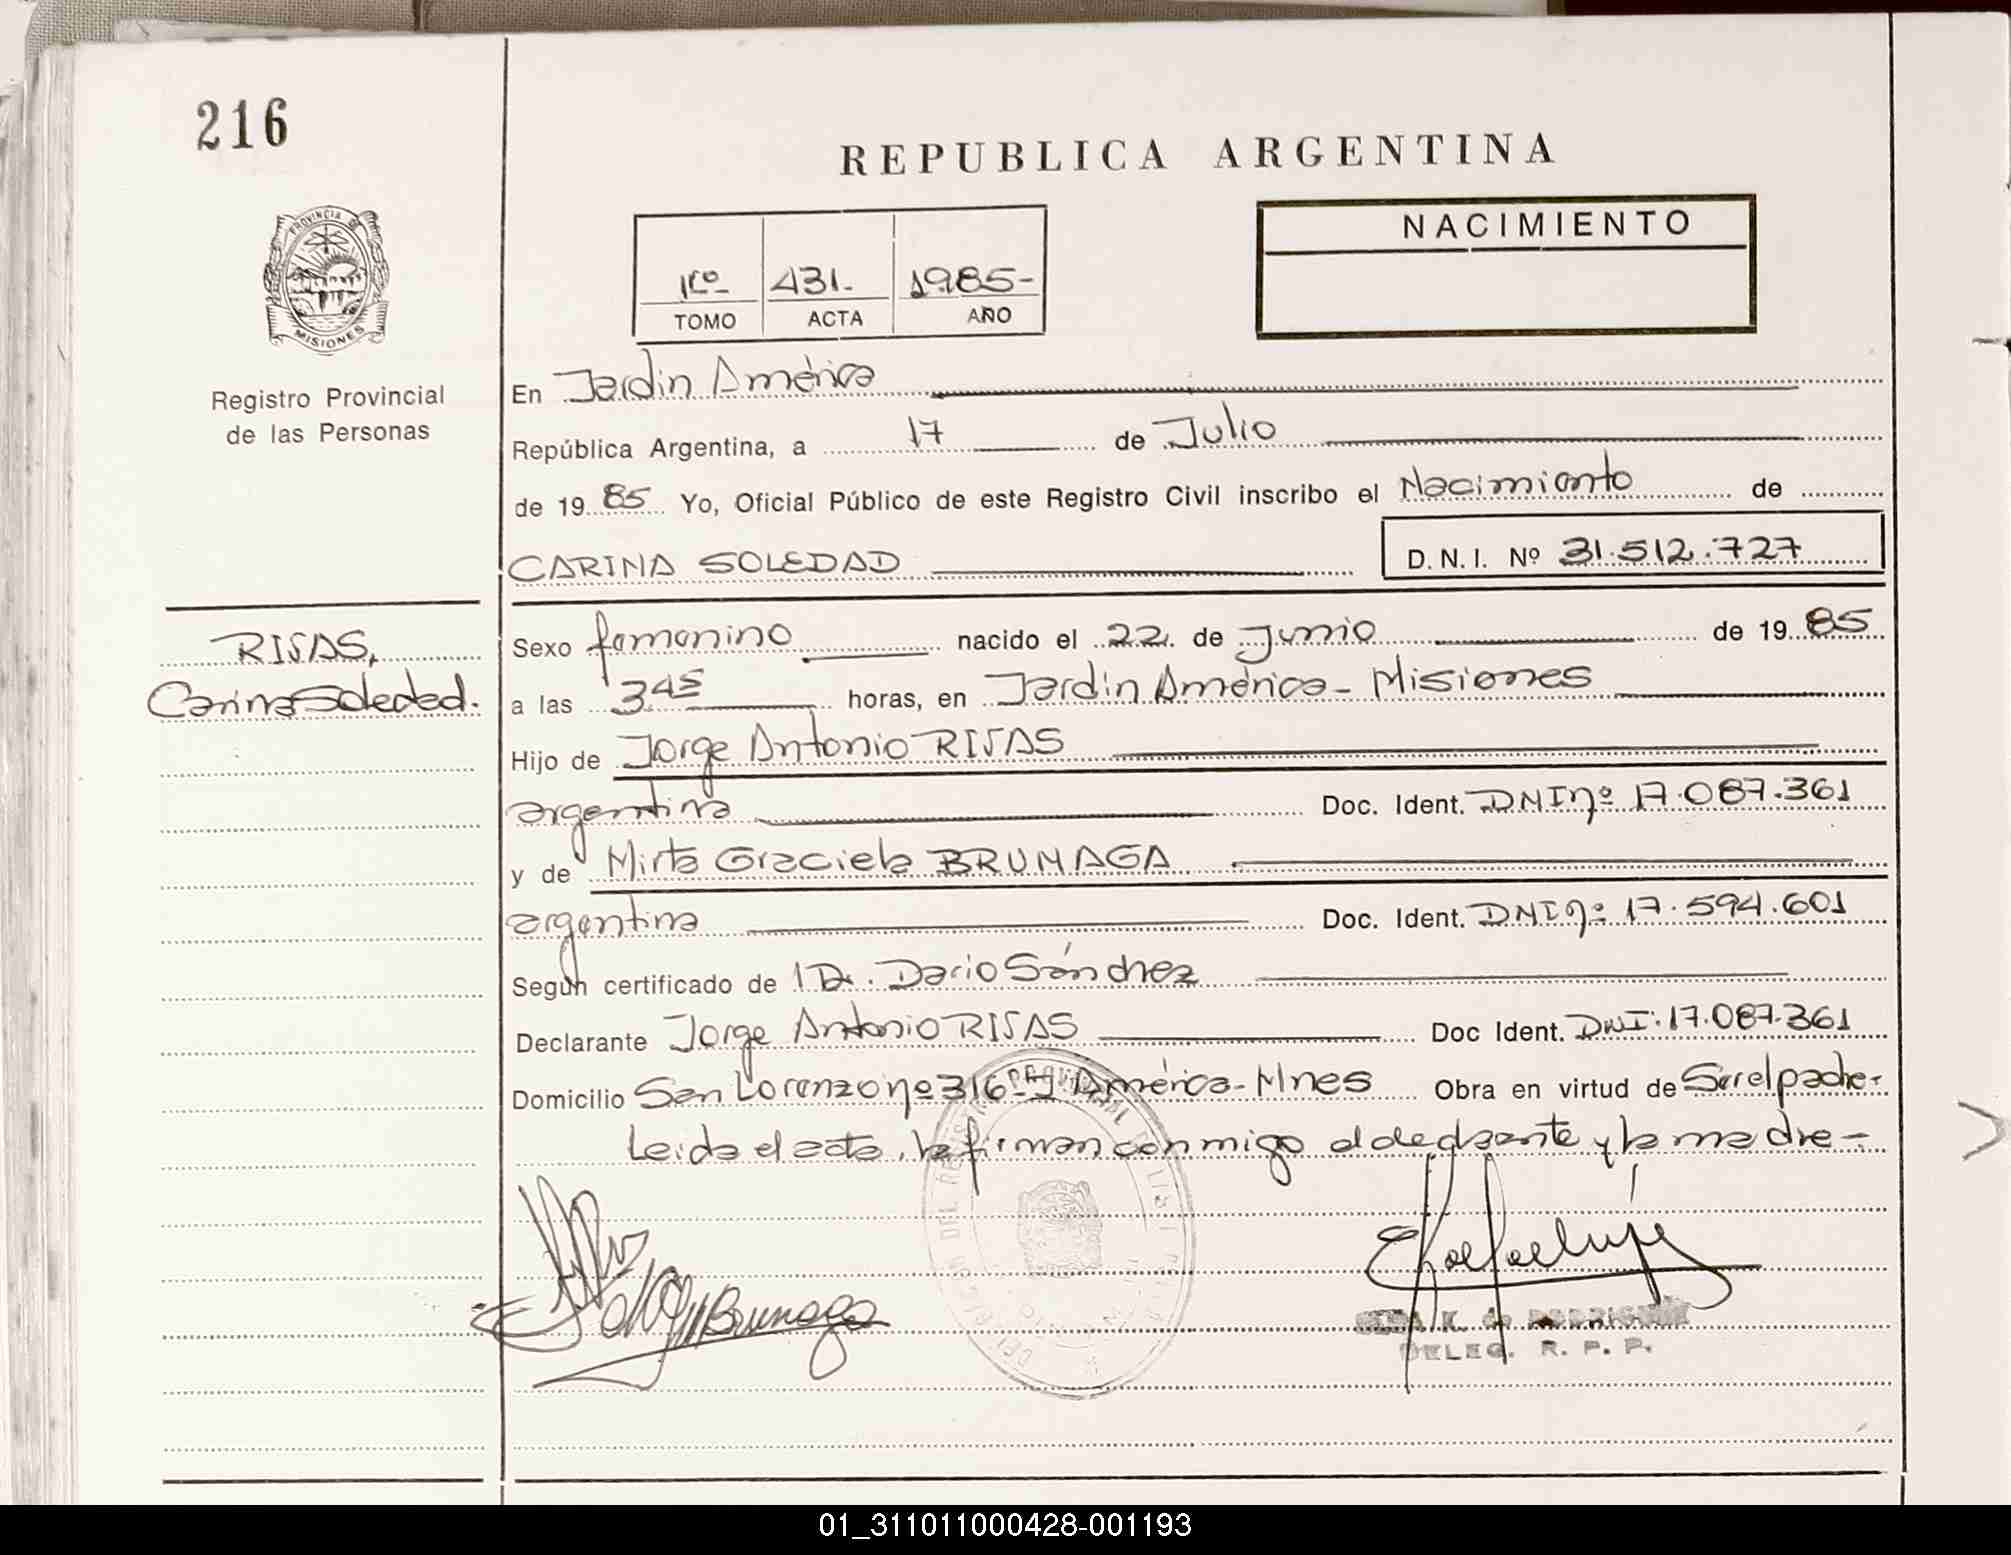 216
REPUBLICA ARGENTINA
PROVINCIA DE
MISIONES
Registro Provincial
de las Personas
1ro- 431.- 1985-
TOMO ACTA AÑO
NACIMIENTO
En Jardin América
República Argentina, a 17 de Julio
de 19 85 Yo, Oficial Público de este Registro Civil inscribo el Nacimiento de
CARINA SOLEDAD D. N. I. Nº 31.512.727
RIVAS,
Carina Soledad.
Sexo femenino nacido el 22 de Junio de 19 85
a las 3 45 horas, en Jardin América - Misiones
Hijo de Jorge Antonio RIVAS
argentina Doc. Ident. DNI nº 17.087.361
y de Mirta Graciela BRUNAGA
argentina Doc. Ident. DNI nº 17.594.601
Según certificado de Dr. Dario Sánchez
Declarante Jorge Antonio RIVAS Doc Ident. DNI: 17.087.361
Domicilio San Lorenzo nº 316 - J. América - Mnes Obra en virtud de Ser el padre -
Leida el acta, la firman conmigo el declarante y la madre -
Brunaga
DELEG. R. P. P.
01_311011000428-001193